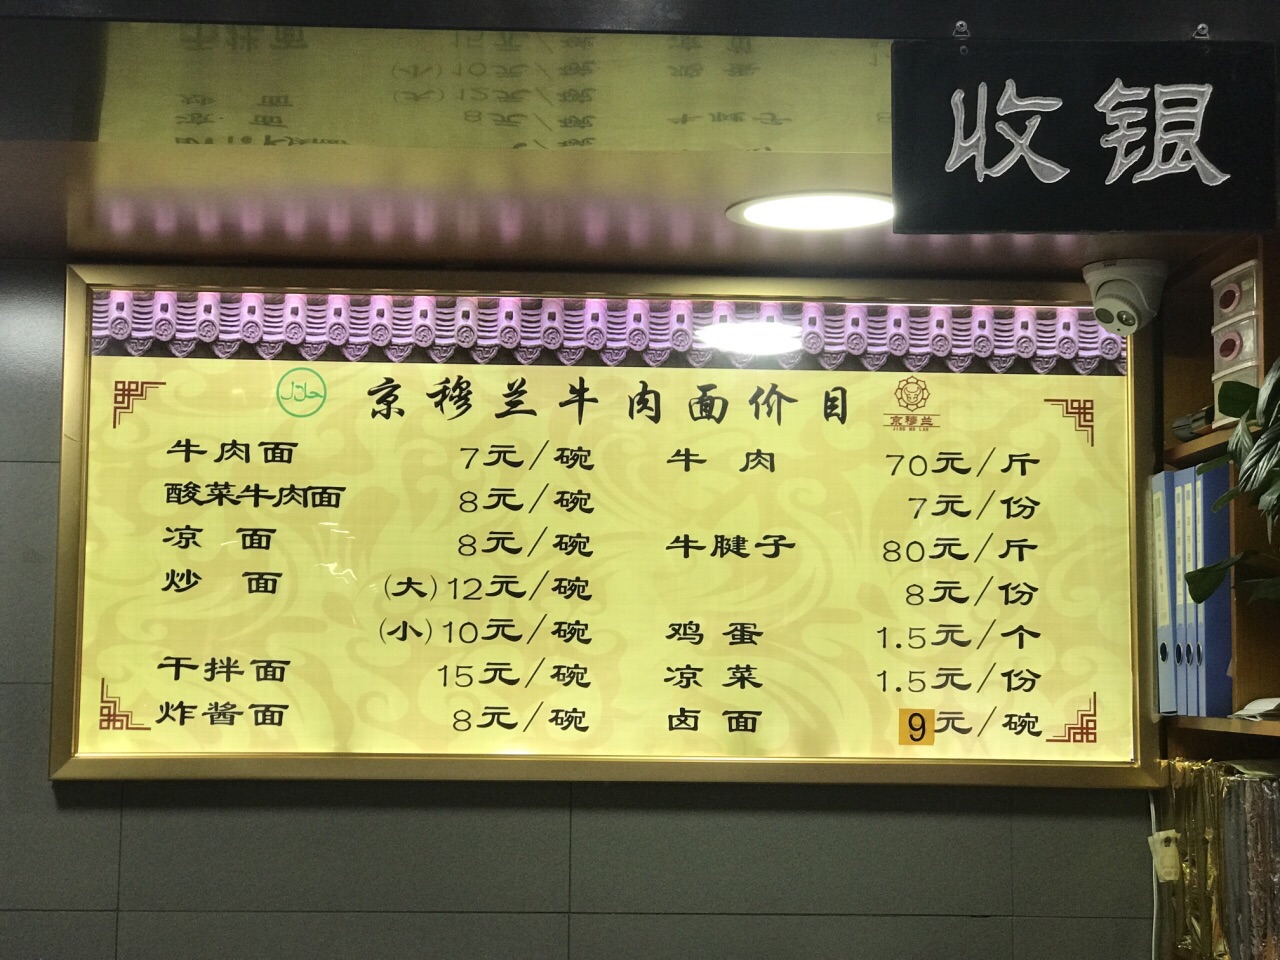 收银
حلال
京穆兰牛肉面价目
京穆兰
JING MU LAN
牛肉面 7元/碗
酸菜牛肉面 8元/碗
凉面 8元/碗
炒面 (大)12元/碗
(小)10元/碗
干拌面 15元/碗
炸酱面 8元/碗
牛肉 70元/斤
7元/份
牛腱子 80元/斤
8元/份
鸡蛋 1.5元/个
凉菜 1.5元/份
卤面 9元/碗